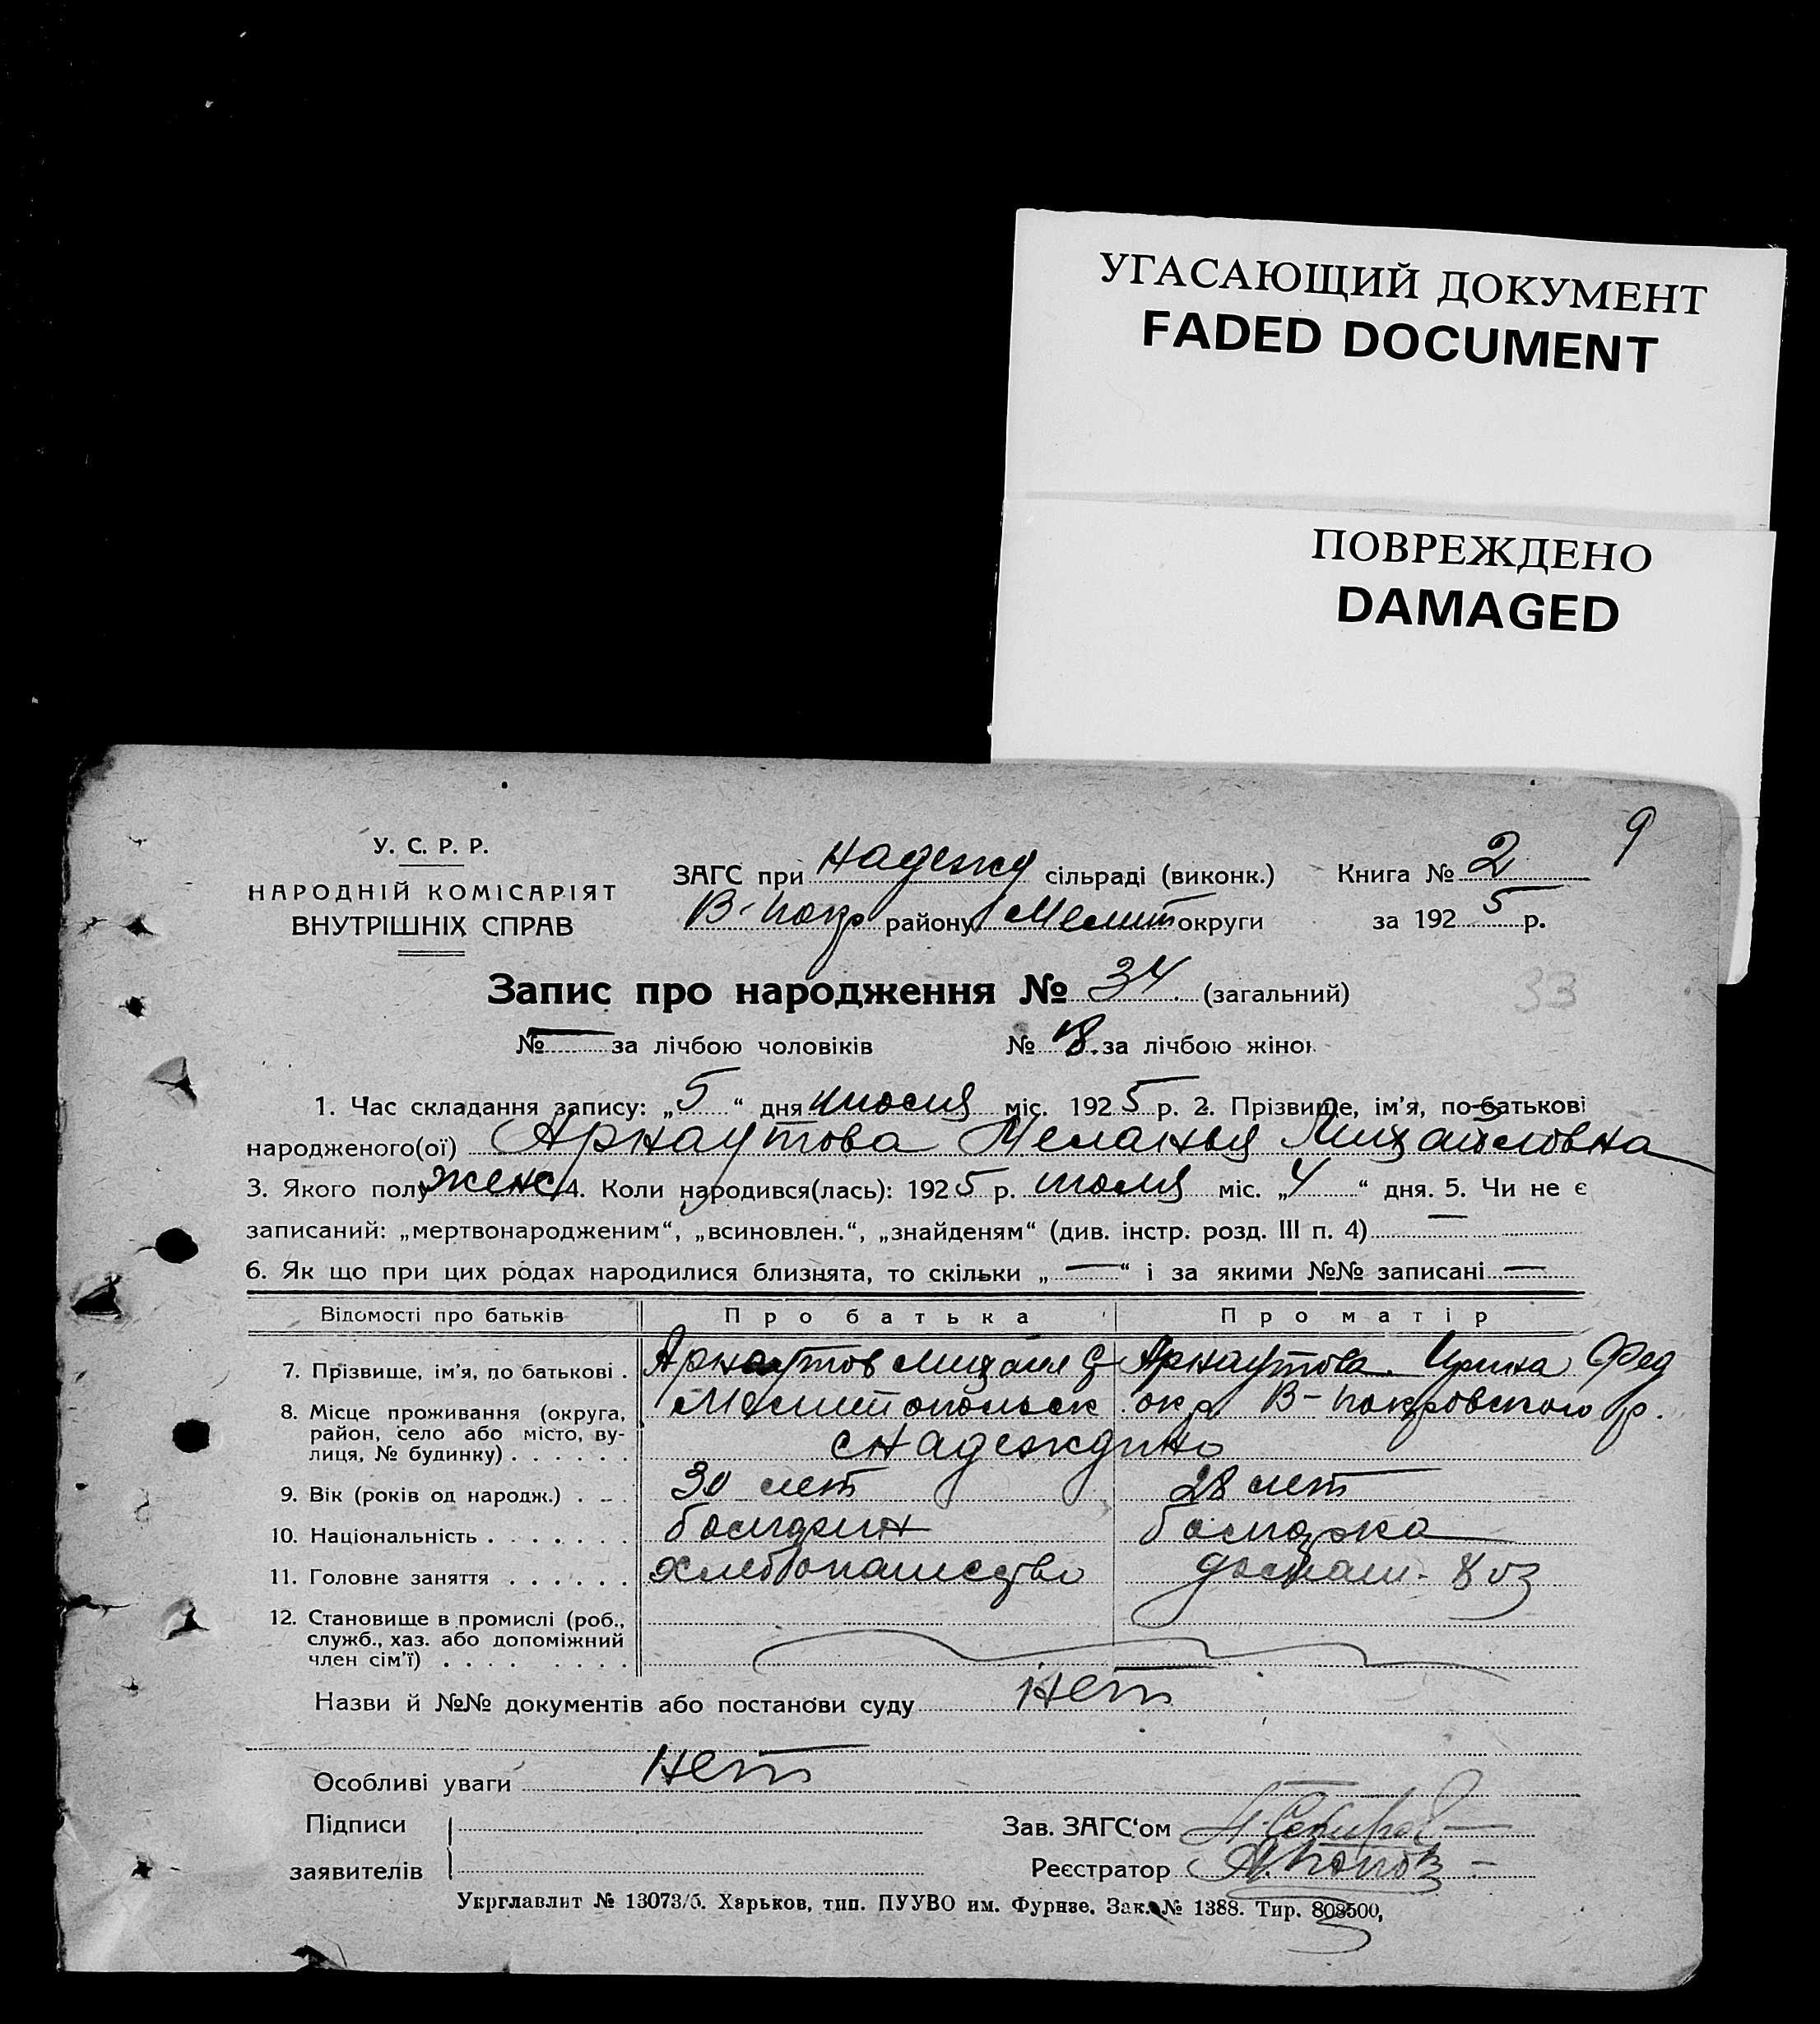 УГАСАЮЩИЙ ДОКУМЕНТ
FADED DOCUMENT
ПОВРЕЖДЕНО
DAMAGED
9
У. С. Р. Р.
НАРОДНІЙ КОМІСАРІЯТ
ВНУТРІШНІХ СПРАВ
ЗАГС при Надежд сільраді (виконк.) Книга № 2
В-Покр району Мелит округи за 1925 р.
Запис про народження № 34 (загальний)
33
№ — за лічбою чоловіків № 18 за лічбою жінок
1. Час складання запису: „5“ дня июля міс. 1925 р. 2. Прізвище, ім’я, по-батькові
народженого(ої) Арнаутова Меланья Михайловна
3. Якого полу женс 4. Коли народився(лась): 1925 р. июля міс. „4“ дня. 5. Чи не є
записаний: „мертвонародженим“, „всиновлен.“, „знайденям“ (див. інстр. розд. III п. 4) —
6. Як що при цих родах народилися близнята, то скільки „—“ і за якими №№ записані —
Відомості про батьків Про батька Про матір
7. Прізвище, ім’я, по батькові . Арнаутов Михаил Арнаутова Ирина Фед
8. Місце проживання (округа, Мелитопольск окр В-Покровского р.
район, село або місто, ву-
лиця, № будинку) . . . . . . с Надеждино
9. Вік (років од народж.) . . . 30 лет 28 лет
10. Національність . . . . . . . болгарин болгарка
11. Головне заняття . . . . . . хлебопашество домаш. хоз
12. Становище в промислі (роб.,
служб., хаз. або допоміжний
член сім’ї) . . . . . . . .
Назви й №№ документів або постанови суду нет
Особливі уваги нет
Підписи Зав. ЗАГС‘ом
заявителів Реєстратор А. Попов
Укрглавлит № 13073/б. Харьков, тип. ПУУВО им. Фурнзе. Зак. № 1388. Тир. 808500,